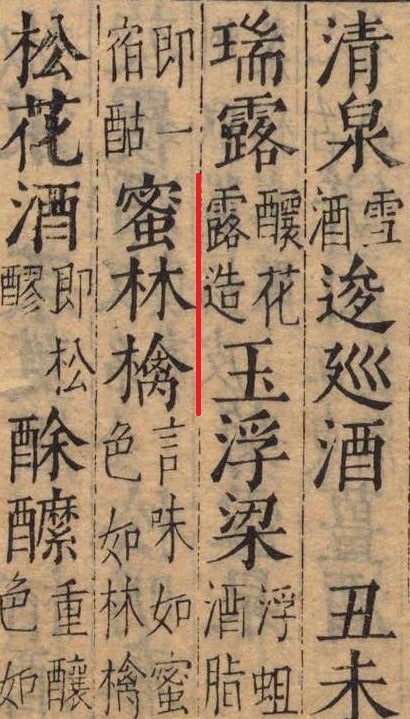 清泉雪酒逡廵酒　丑未
瑞露釀花露造玉浮梁浮蛆酒脂
即一宿酤蜜林檎言味如蜜色如林檎
松花酒即松醪酴醾重釀色如